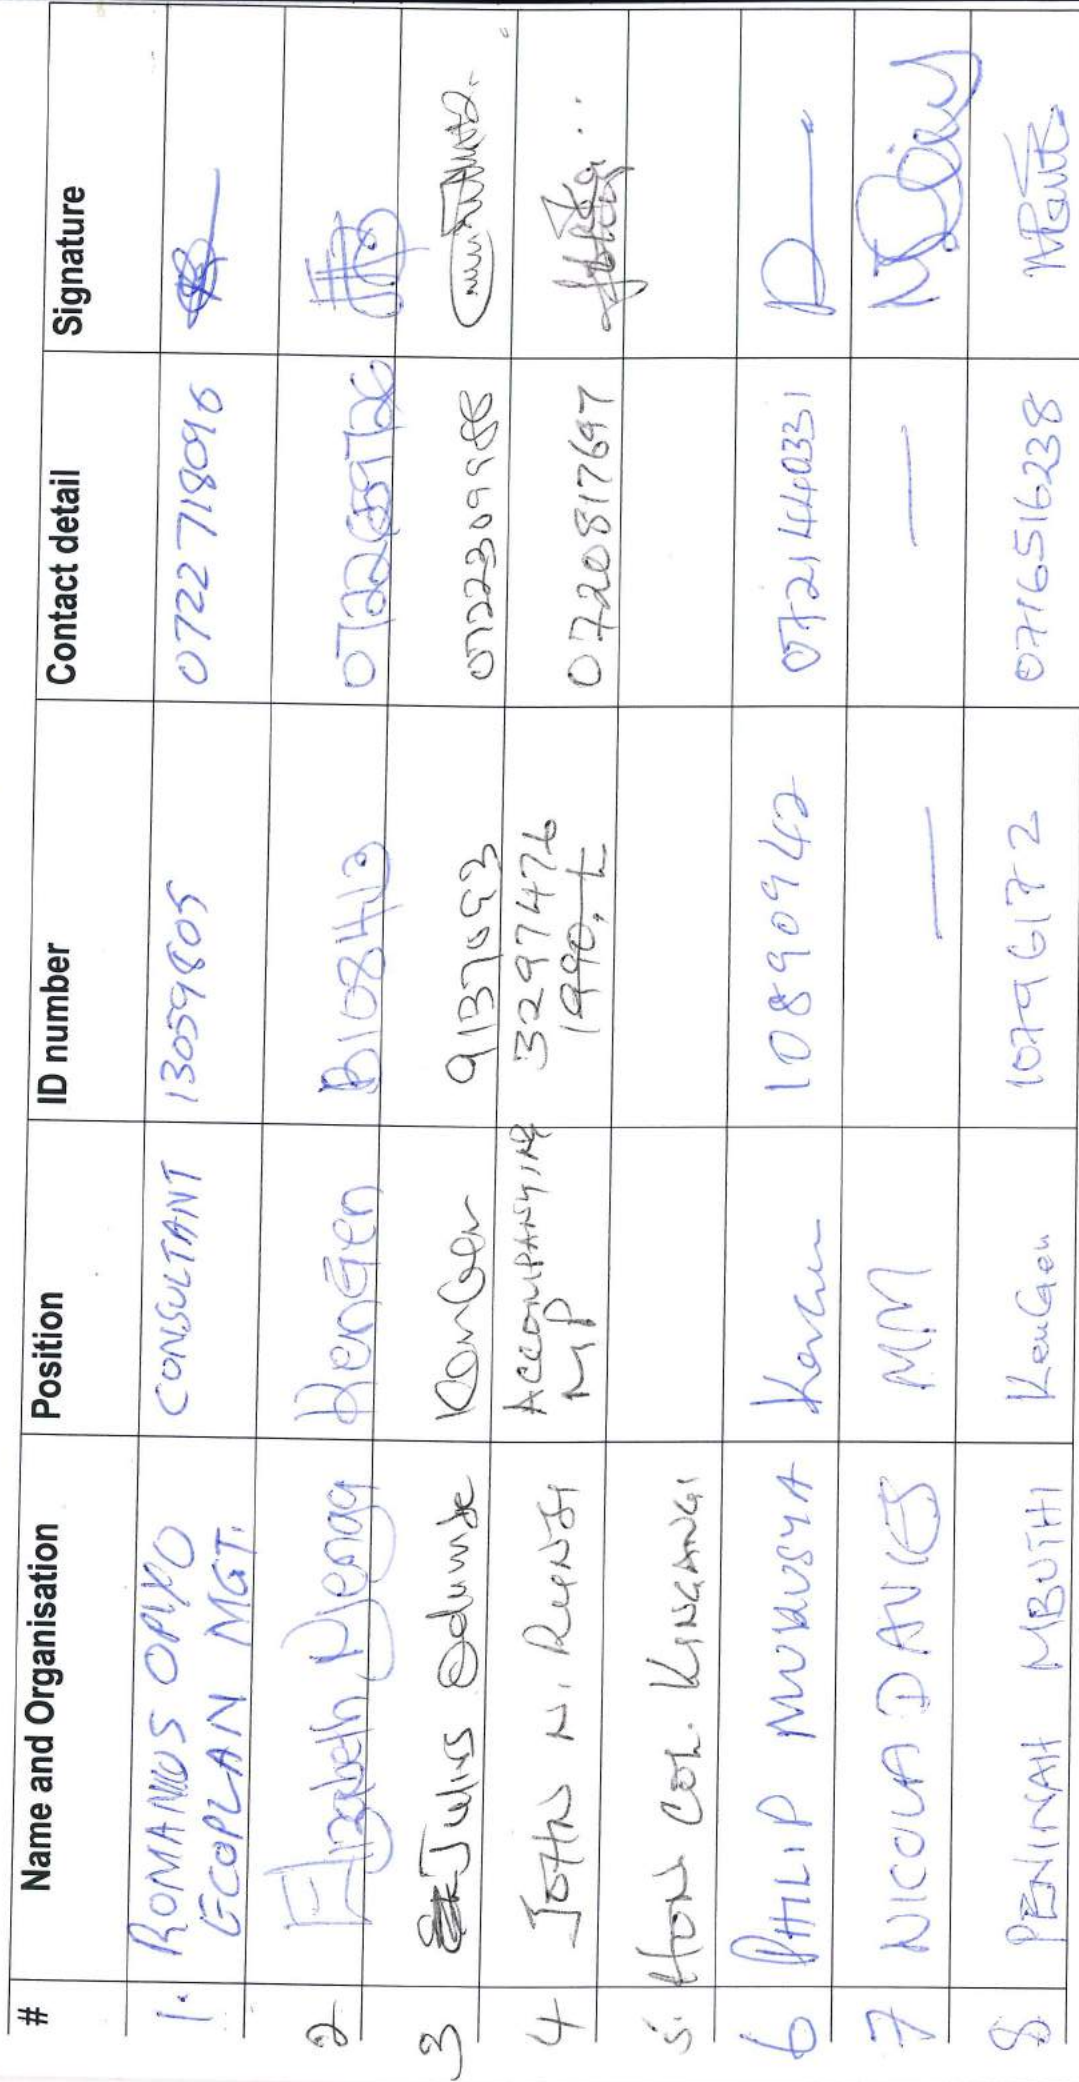 # Name and Organisation Position ID number Contact detail Signature
1. ROMANUS OPIYO CONSULTANT 13059805 0722718096
ECOPLAN MGT.
2 Elizabeth Njenga KenGen
3 Julius Odumbe KenGen 9137093 0722309988
4 JOHN N. RUENJI ACCOMPANYING 3297476 0720817697
MP
5. HON COL. KINGANGI
6 PHILIP MUVUSYA 10890942 0721440331
7 NICOLA DAVIES MM — —
8 PENINAH MBUTHI KenGen 10796172 0716516238